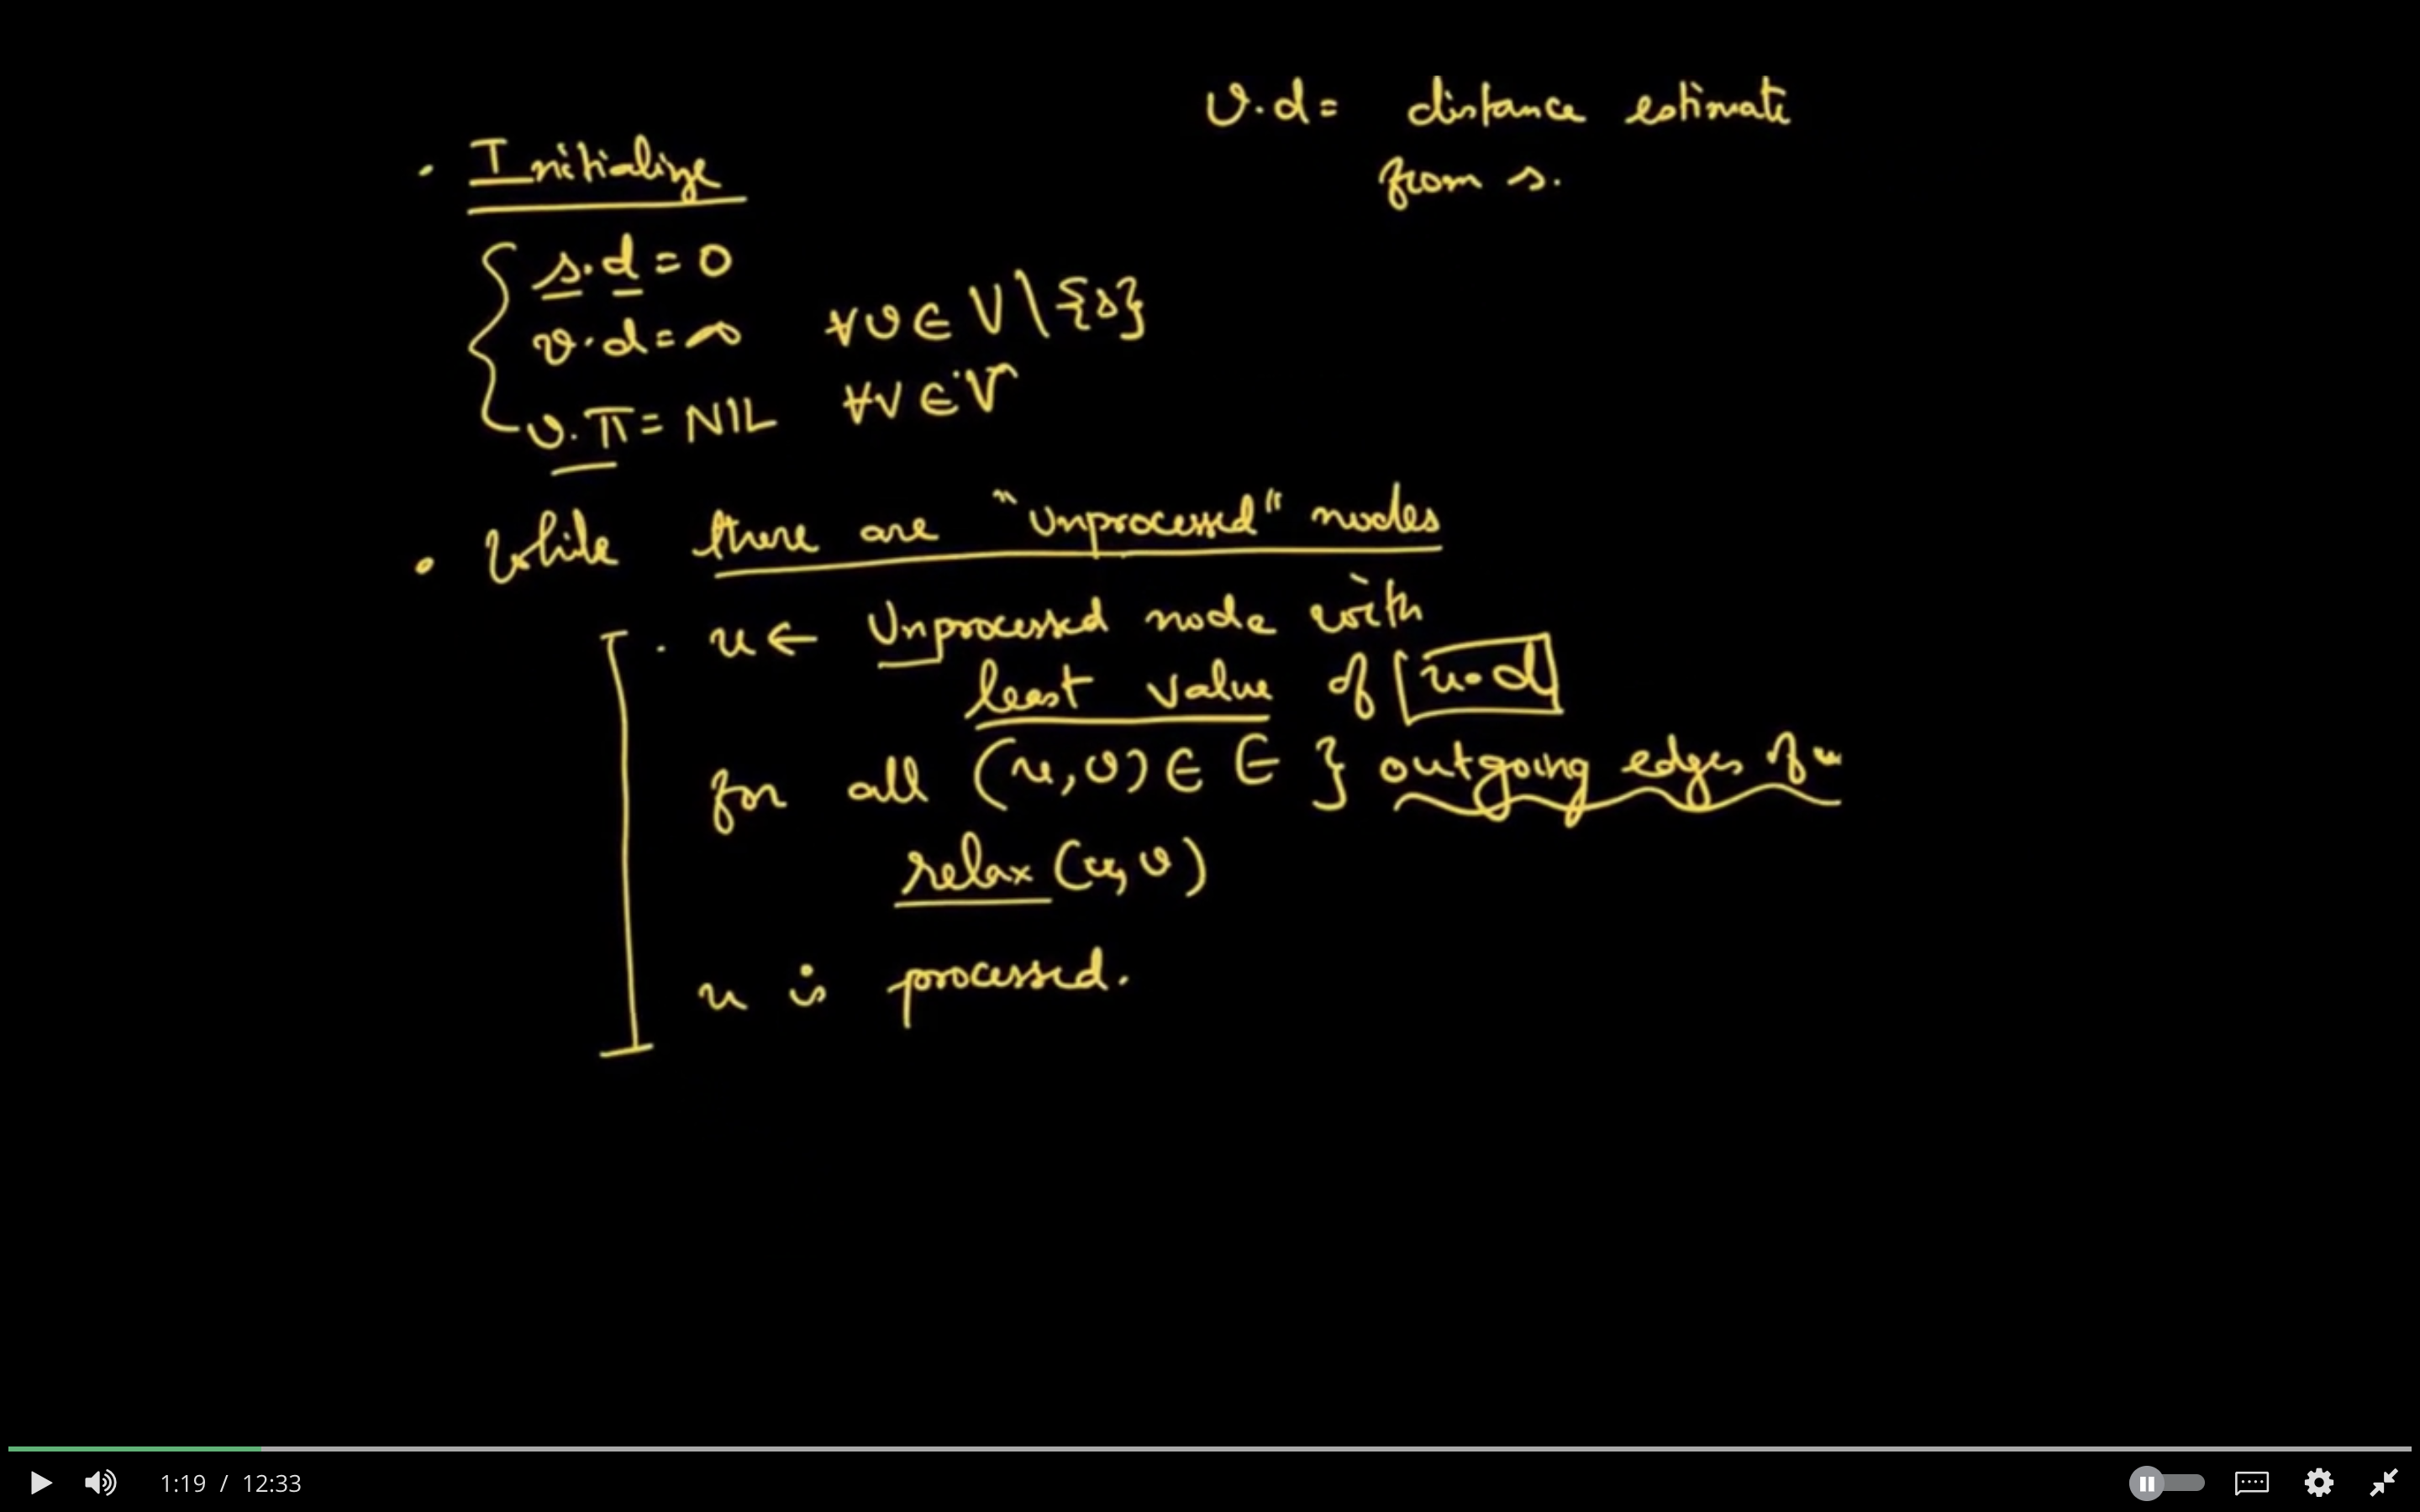 v.d = distance estimate
from s.
· Initialize
s.d = 0
v.d = ∞ ∀v ∈ V\{s}
v.π = NIL ∀v ∈ V
· While there are "Unprocessed" nodes
· u ← Unprocessed node with
least value of u.d
for all (u,v) ∈ E } outgoing edges of u
relax (u,v)
u is processed.
1:19 / 12:33